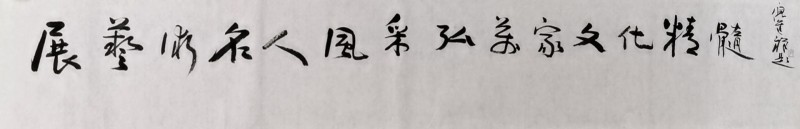 展藝術名人風采弘萬家文化精髓